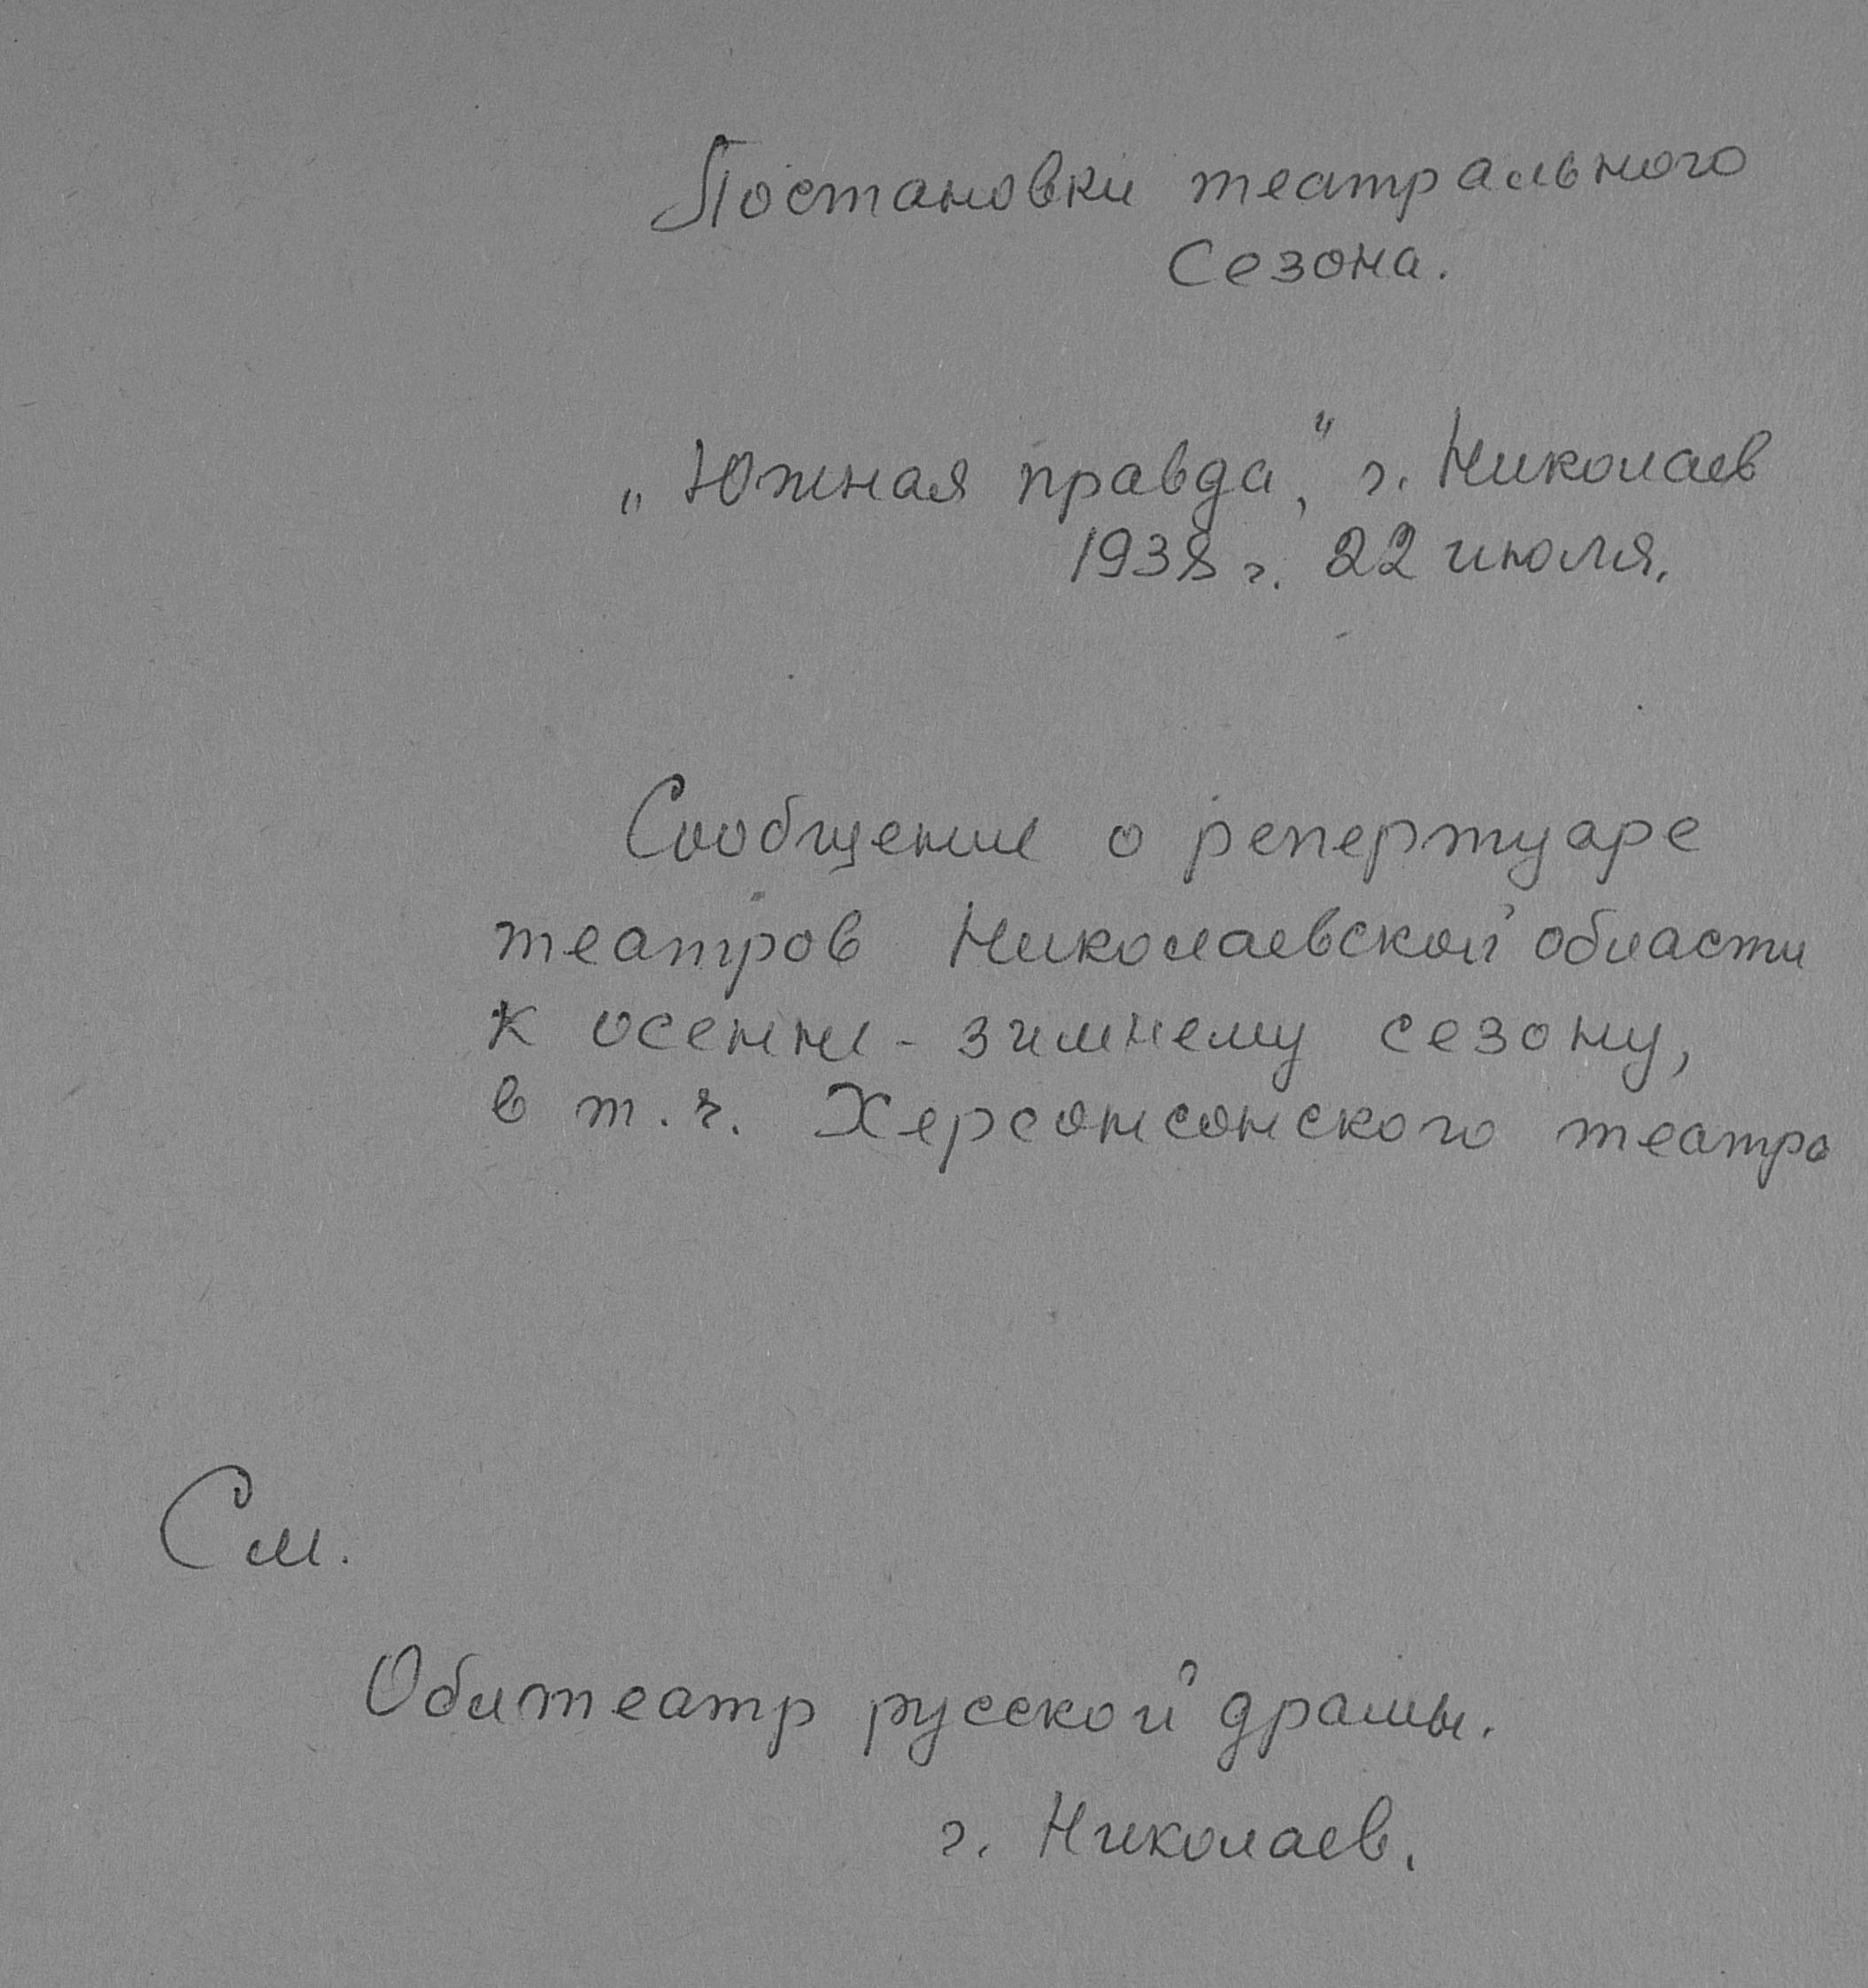 Постановки театрального
сезона.
„Южная правда,“ г. Николаев
1938 г. 22 июля.
Сообщение о репертуаре
театров Николаевской области
к осенне-зимнему сезону,
в т. ч. Херсонсонского театра
См.
Облтеатр русской драмы.
г. Николаев.